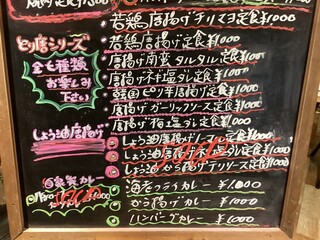 若鶏唐揚げチリマヨ定食¥1000
とり唐シリーズ
全七種類
お楽しみ
下さい
若鶏唐揚げ定食¥1000
唐揚げ南蛮タルタル定食¥1000
唐揚げネギ塩ダレ定食¥1000
韓国ピリ辛唐揚げ定食¥1000
唐揚げガーリックソース定食¥1000
唐揚げ梅塩ダレ定食¥1000
しょう油唐揚げ
しょう油唐揚げ
定食¥1000
しょう油唐揚げ
定食¥1000
しょう油から揚げテリソース定食¥1000
カレー
海老フライカレー ¥1000
から揚げカレー ¥1000
ハンバーグカレー ¥1000